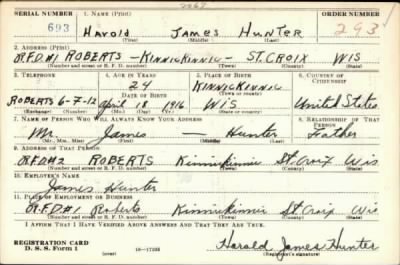 SERIAL NUMBER 1. NAME (Print) ORDER NUMBER
693 Harold James Hunter 293
(First) (Middle) (Last)
2. ADDRESS (Print)
R.F.D.#1 ROBERTS - KINNICKINNIC - ST. CROIX WIS
(Number and street or R. F. D. number) (Town) (County) (State)
3. TELEPHONE 4. AGE IN YEARS 5. PLACE OF BIRTH 6. COUNTRY OF CITIZENSHIP
24 KINNICKINNIC
(Town or county)
ROBERTS 6-7-12 April 18 1916 WIS United States
(Exchange) (Number) (Mo.) (Day) (Yr.) (State or country)
7. NAME OF PERSON WHO WILL ALWAYS KNOW YOUR ADDRESS 8. RELATIONSHIP OF THAT PERSON
Mr. James - Hunter Father
(Mr., Mrs., Miss) (First) (Middle) (Last)
9. ADDRESS OF THAT PERSON
R.F.D#2 ROBERTS Kinnickinnic St. Croix Wis
(Number and street or R. F. D. number) (Town) (County) (State)
10. EMPLOYER'S NAME
James Hunter
11. PLACE OF EMPLOYMENT OR BUSINESS
R.F.D#1 Roberts Kinnickinnic St Croix Wis
(Number and street or R. F. D. number) (Town) (County) (State)
I AFFIRM THAT I HAVE VERIFIED ABOVE ANSWERS AND THAT THEY ARE TRUE.
REGISTRATION CARD
D. S. S. Form 1 (over) 16-17105 Harold James Hunter
(Registrant's signature)